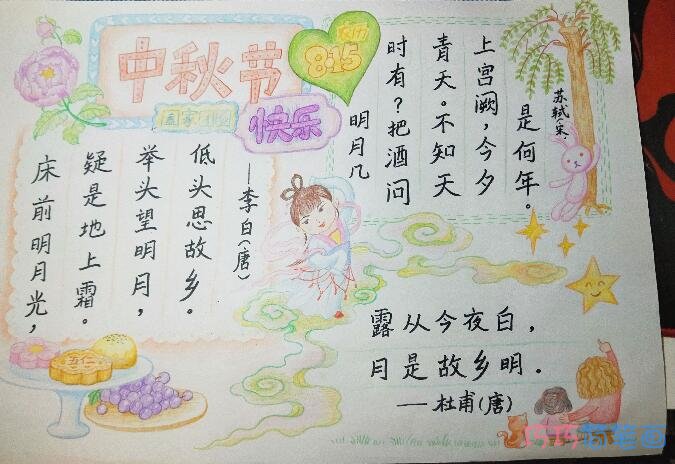 中秋节
农历
8·15
快乐
床前明月光，
疑是地上霜。
举头望明月，
低头思故乡。
——李白(唐)
明月几
时有？把酒问
青天。不知天
上宫阙，今夕
是何年。
苏轼(宋)
露从今夜白，
月是故乡明．
——杜甫(唐)
五仁